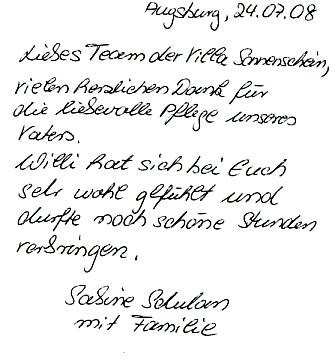 Augsburg, 24.07.08
Liebes Team der Villa Sonnenschein,
vielen herzlichen Dank für
die liebevolle Pflege unseres
Vaters.
Willi hat sich bei Euch
sehr wohl gefühlt und
durfte noch schöne Stunden
verbringen.
Sabine
mit Familie